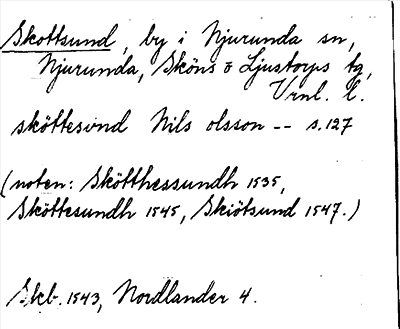 Skottsund, by i Njurunda sn,
Njurunda, Sköns o Ljustorps tg,
Vrnl. l.
sköttesvnd Nils olsson -- s. 127
(noten: Skötthessundh 1535,
Sköttesundh 1545, Skiötsund 1547.)
Skb. 1543, Nordlander 4.